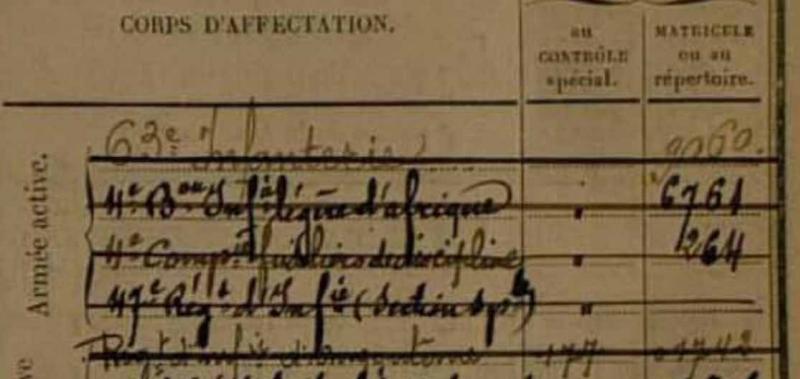 CORPS D'AFFECTATION.
au
CONTRÔLE
spécial.
MATRICULE
ou au
répertoire.
Armée active.
63e Infanterie 9060.
4e B.on Inf.ie légère d'afrique " 6761
4e Comp.ie fusiliers de discipline " 264
47e Rég.t d'Inf.ie (Section sp.le) "
Rég.t d'inf.ie 177 1742